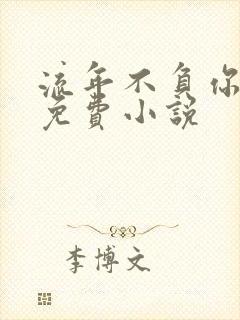 流年不負你
免費小說
李博文